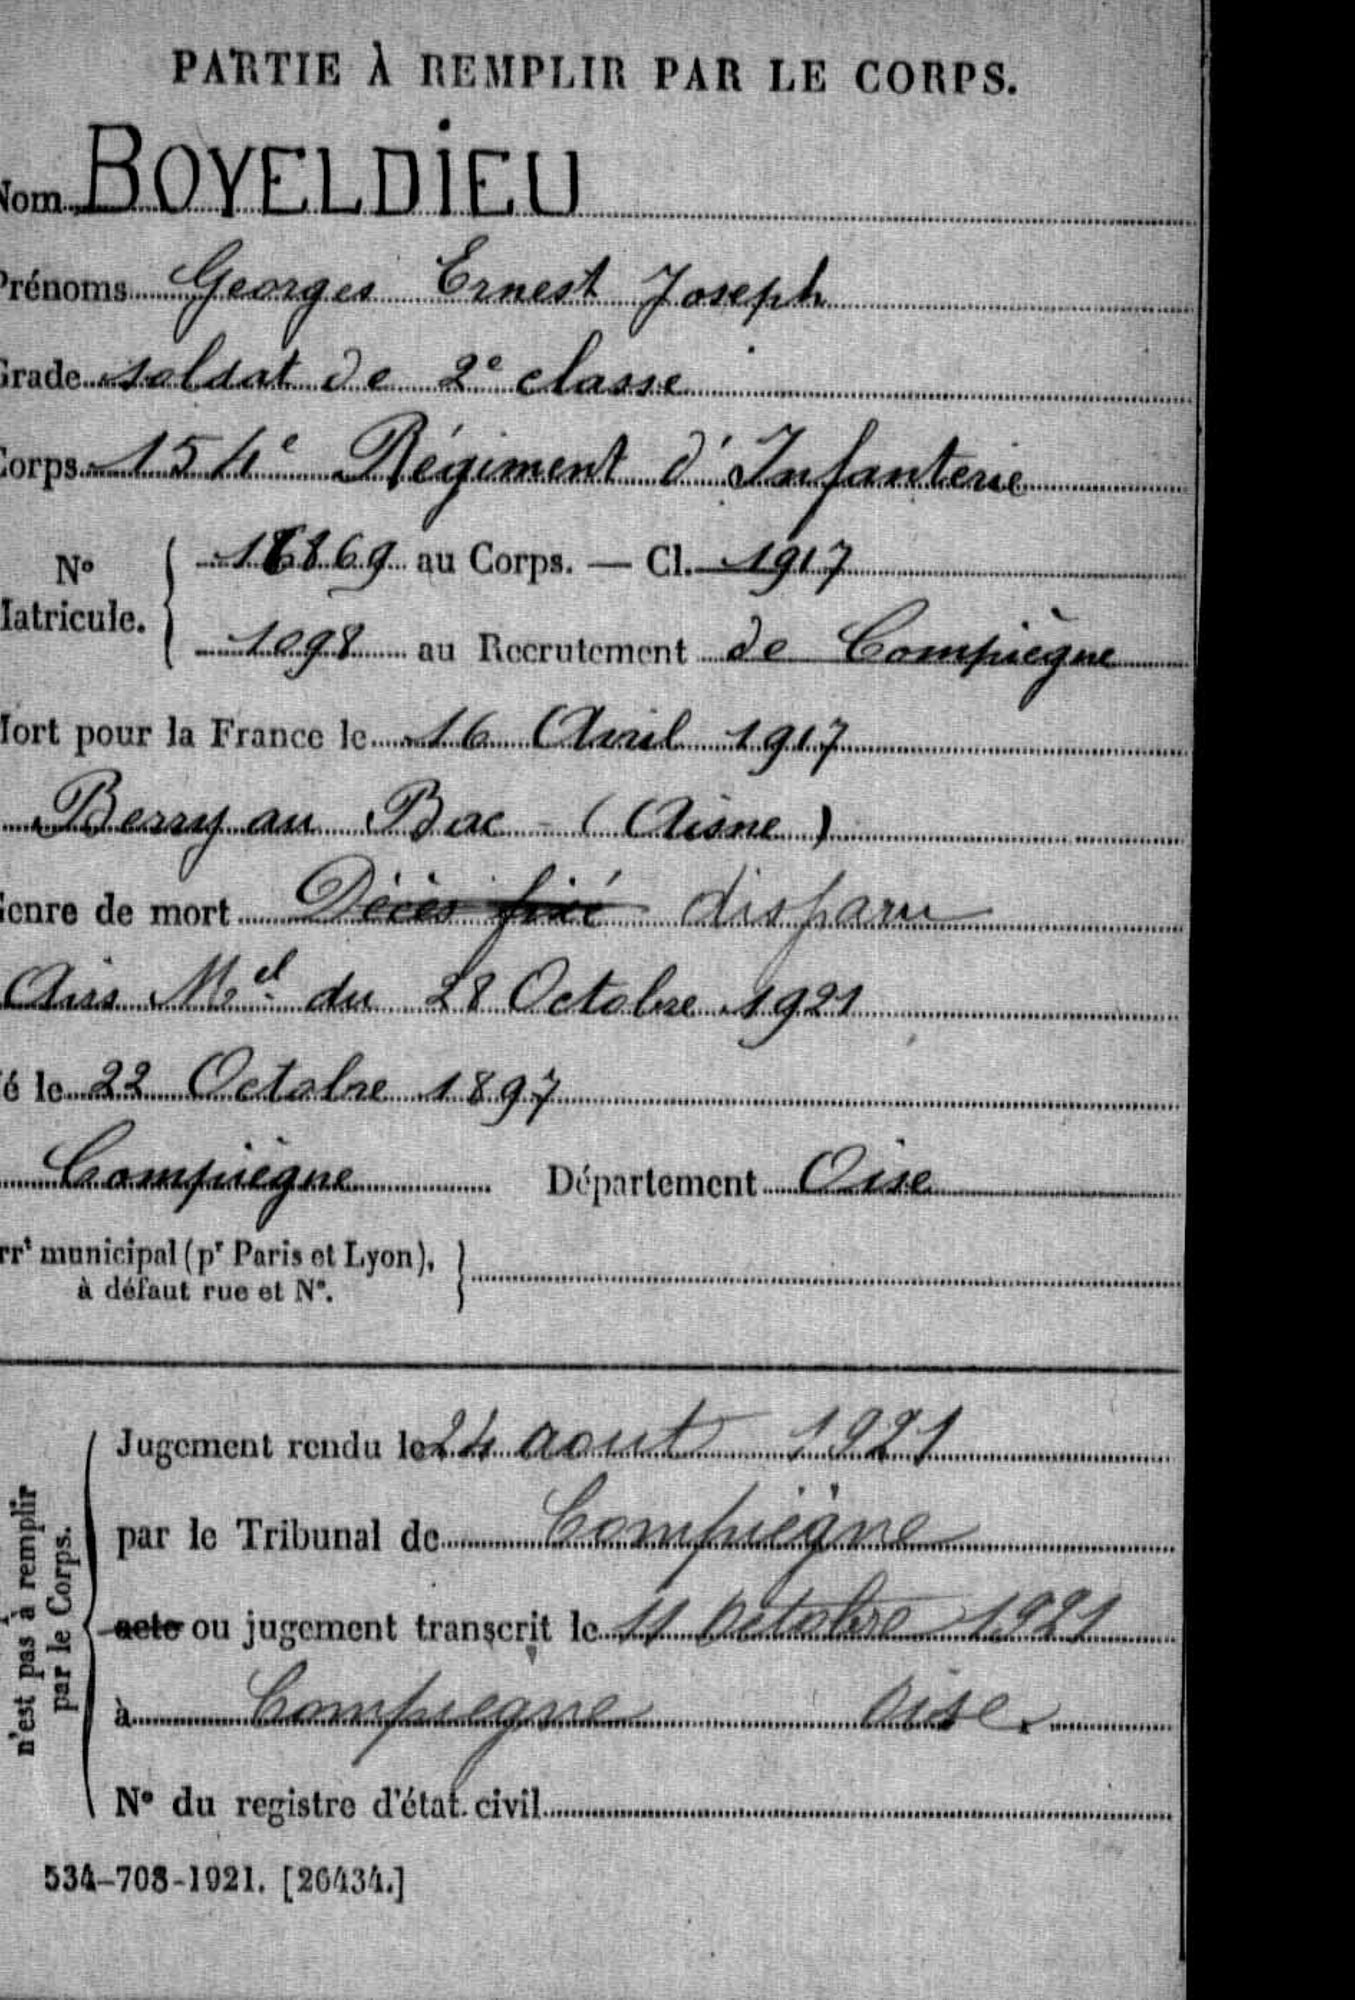 PARTIE À REMPLIR PAR LE CORPS.
Nom BOYELDIEU
Prénoms Georges Ernest Joseph
Grade soldat de 2e classe
Corps 154e Régiment d'Infanterie
No Matricule. au Corps. — Cl. 1917
1098 au Recrutement de Compiègne
Mort pour la France le 16 Avril 1917
Berry au Bac (Aisne)
Genre de mort Décès fixé disparu
Avis Mel du 28 Octobre 1921
é le 22 Octobre 1897
Compiègne Département Oise
rrt municipal (pr Paris et Lyon),
à défaut rue et No.
n'est pas à remplir
par le Corps.
Jugement rendu le 24 aout 1921
par le Tribunal de Compiègne
acte ou jugement transcrit le 11 Octobre 1921
à Compiegne Oise.
No du registre d'état civil
534-708-1921. [26434.]